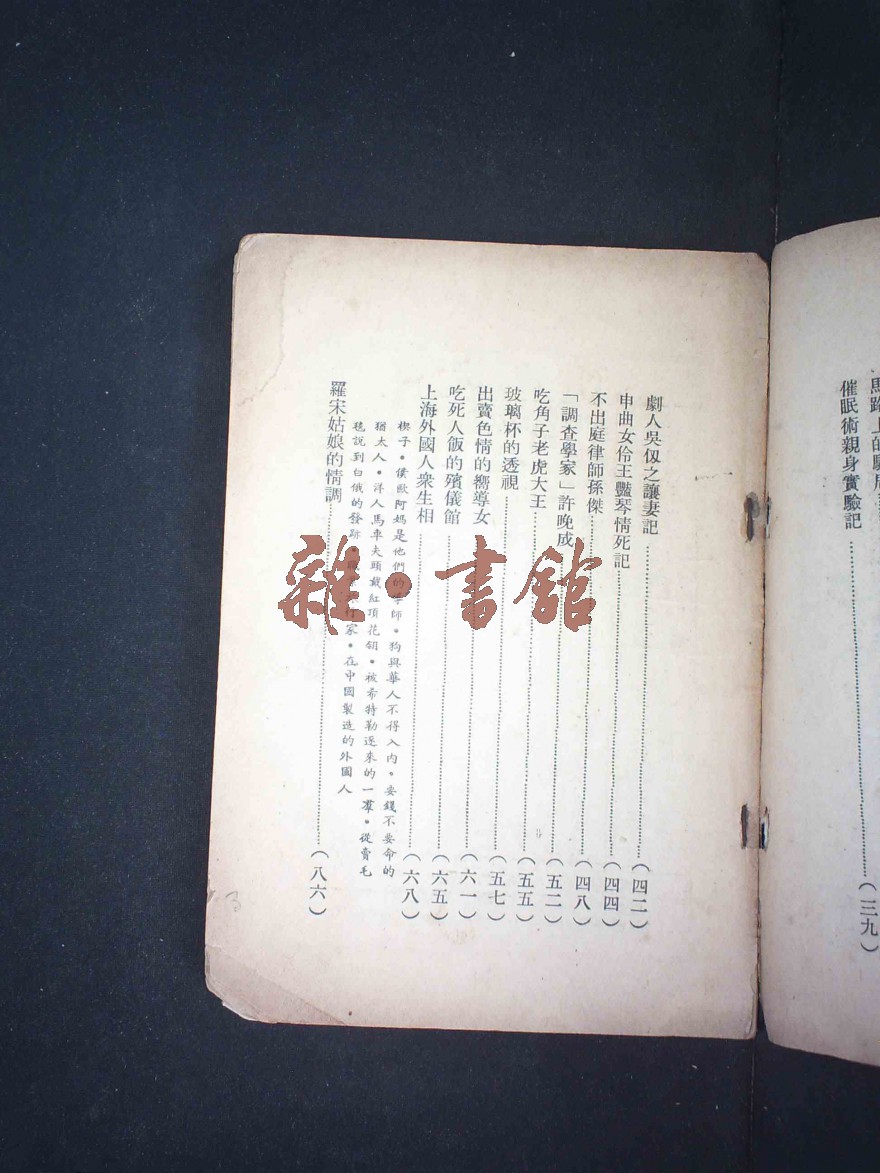 催眠術親身實驗記……(三九)
劇人吳仞之讓妻記……(四二)
申曲女伶王豔琴情死記……(四四)
不出庭律師孫傑……(四八)
「調查學家」許晚成……(五二)
吃角子老虎大王……(五五)
玻璃杯的透視……(五七)
出賣色情的嚮導女……(六一)
吃死人飯的殯儀館……(六五)
上海外國人衆生相……(六八)
楔子・僕歐阿媽是他們的導師・狗與華人不得入內・要錢不要命的
猶太人・洋人馬車夫頭戴紅頂花翎・被希特勒逐來的一羣・從賣毛
毯說到白俄的發跡・家・在中國製造的外國人
羅宋姑娘的情調……(八六)
雜・書館
3